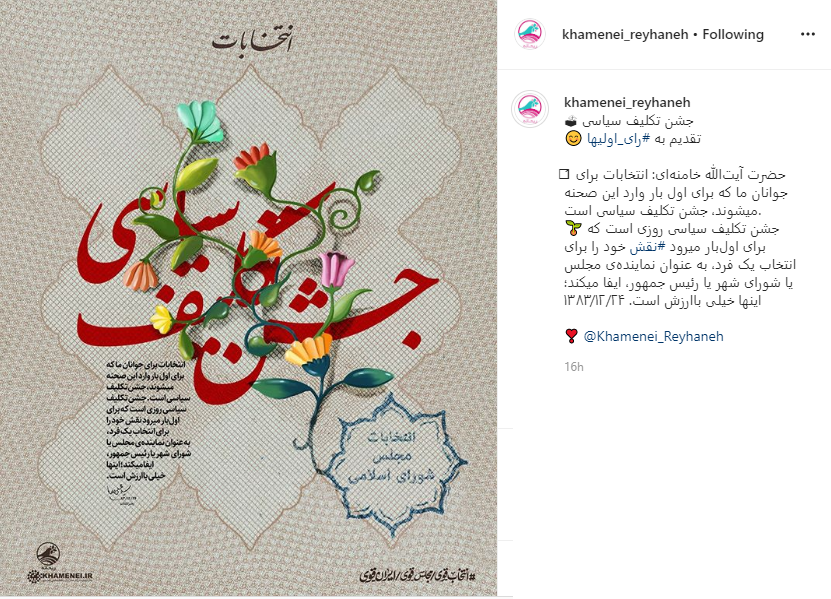 انتخابات
جشن تکلیف سیاسی
انتخابات برای جوانان ما که
برای اول بار وارد این صحنه
میشوند، جشن تکلیف
سیاسی است. جشن تکلیف
سیاسی روزی است که برای
اول‌بار میرود نقش خود را
برای انتخاب یک فرد،
به عنوان نماینده‌ی مجلس یا
شورای شهر یا رئیس جمهور،
ایفا میکند؛ اینها
خیلی باارزش است.
انتخابات
مجلس
شورای اسلامی
KHAMENEI.IR
#انتخابات_قوی/مجلس_قوی/ایران_قوی
khamenei_reyhaneh • Following
khamenei_reyhaneh
جشن تکلیف سیاسی
تقدیم به #رای_اولیها 😊
حضرت آیت‌الله خامنه‌ای: انتخابات برای
جوانان ما که برای اول بار وارد این صحنه
میشوند، جشن تکلیف سیاسی است.
جشن تکلیف سیاسی روزی است که
برای اول‌بار میرود #نقش خود را برای
انتخاب یک فرد، به عنوان نماینده‌ی مجلس
یا شورای شهر یا رئیس جمهور، ایفا میکند؛
اینها خیلی باارزش است. ۱۳۸۳/۱۲/۲۴
@Khamenei_Reyhaneh
16h